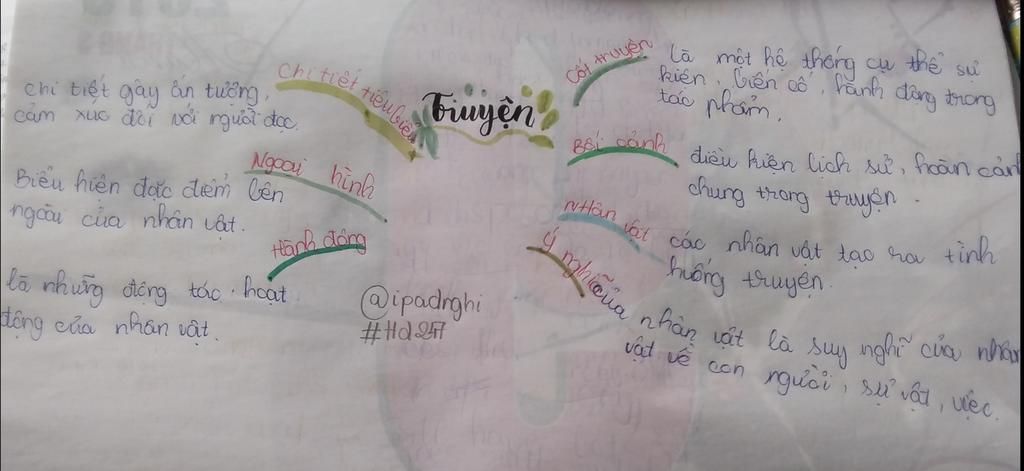 Truyện
Chi tiết tiêu biểu
chi tiết gây ấn tượng,
cảm xúc đối với người đọc.
Ngoại hình
Biểu hiện đặc điểm bên
ngoài của nhân vật.
Hành động
là những động tác, hoạt
động của nhân vật.
Cốt truyện
là một hệ thống cụ thể sự
kiện, biến cố, hành động trong
tác phẩm.
Bối cảnh
điều kiện lịch sử, hoàn cảnh
chung trong truyện.
Nhân vật
các nhân vật tạo ra tình
huống truyện.
Ý nghĩ
của nhân vật là suy nghĩ của nhân
vật về con người, sự vật, việc.
@ipadnghi